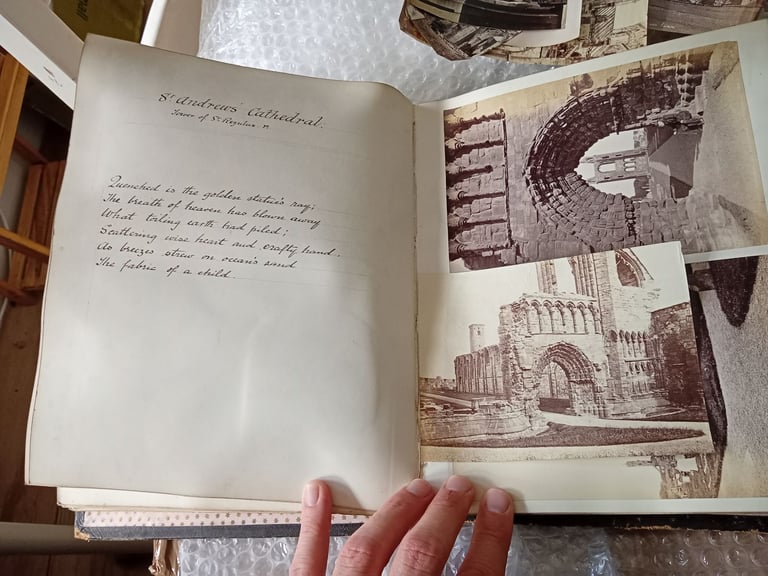 St Andrews' Cathedral.
Tower of St Regulus
Quenched is the golden statue's ray;
The breath of heaven has blown away
What toiling earth had piled;
Scattering wise heart and crafty hand.
As breezes strew on ocean's sand
The fabric of a child.